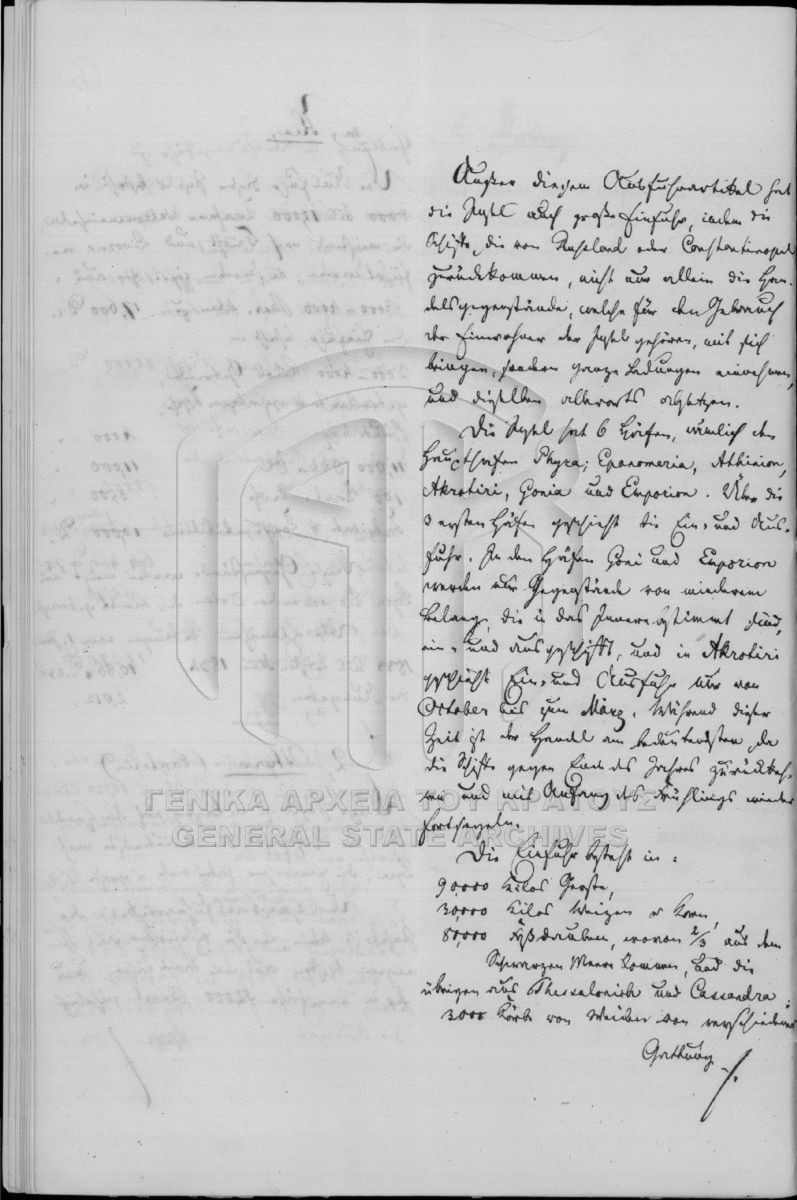 Außer diesem Ausfuhrartikel hat
die Insel auch große Einfuhr, indem die
Schiffe, die von Rußland oder Constantinopel
zurückkommen, nicht nur allein die Han-
delsgegenstände, welche für den Gebrauch
der Einwohner der Insel gehören, mit sich
bringen, sondern ganze Ladungen einnehmen,
und dieselben allerorts absetzen.
Die Insel hat 6 Häfen, nämlich den
Haupthafen Phyra; Epanomeria, Athinion,
Akrotiri, Gonia und Emporion. Über die
3 ersten Häfen geschieht die Ein- und Aus-
fuhr. In den Häfen Goni und Emporion
werden nur Gegenstände von minderem
Belang, die in das Innere bestimmt sind,
ein- und ausgeschifft, und in Akrotiri
geschieht Ein- und Ausfuhr nur von
October bis zum März. Während dieser
Zeit ist der Handel am bedeutendsten, da
die Schiffe gegen Ende des Jahres zurückkeh-
ren und mit Anfang des Frühlings wieder
fortsegeln.
Die Einfuhr besteht in:
90,000 Kilos Gerste,
30,000 Kilos Weizen & Korn,
80,000 Faßdauben, wovon 2/3 aus dem
Schwarzen Meere kommen, und die
übrigen aus Thessalonich und Cassandra;
3000 Körbe von Weiden von verschiedener
Gattung
ΓΕΝΙΚΑ ΑΡΧΕΙΑ ΤΟΥ ΚΡΑΤΟΥΣ
GENERAL STATE ARCHIVES